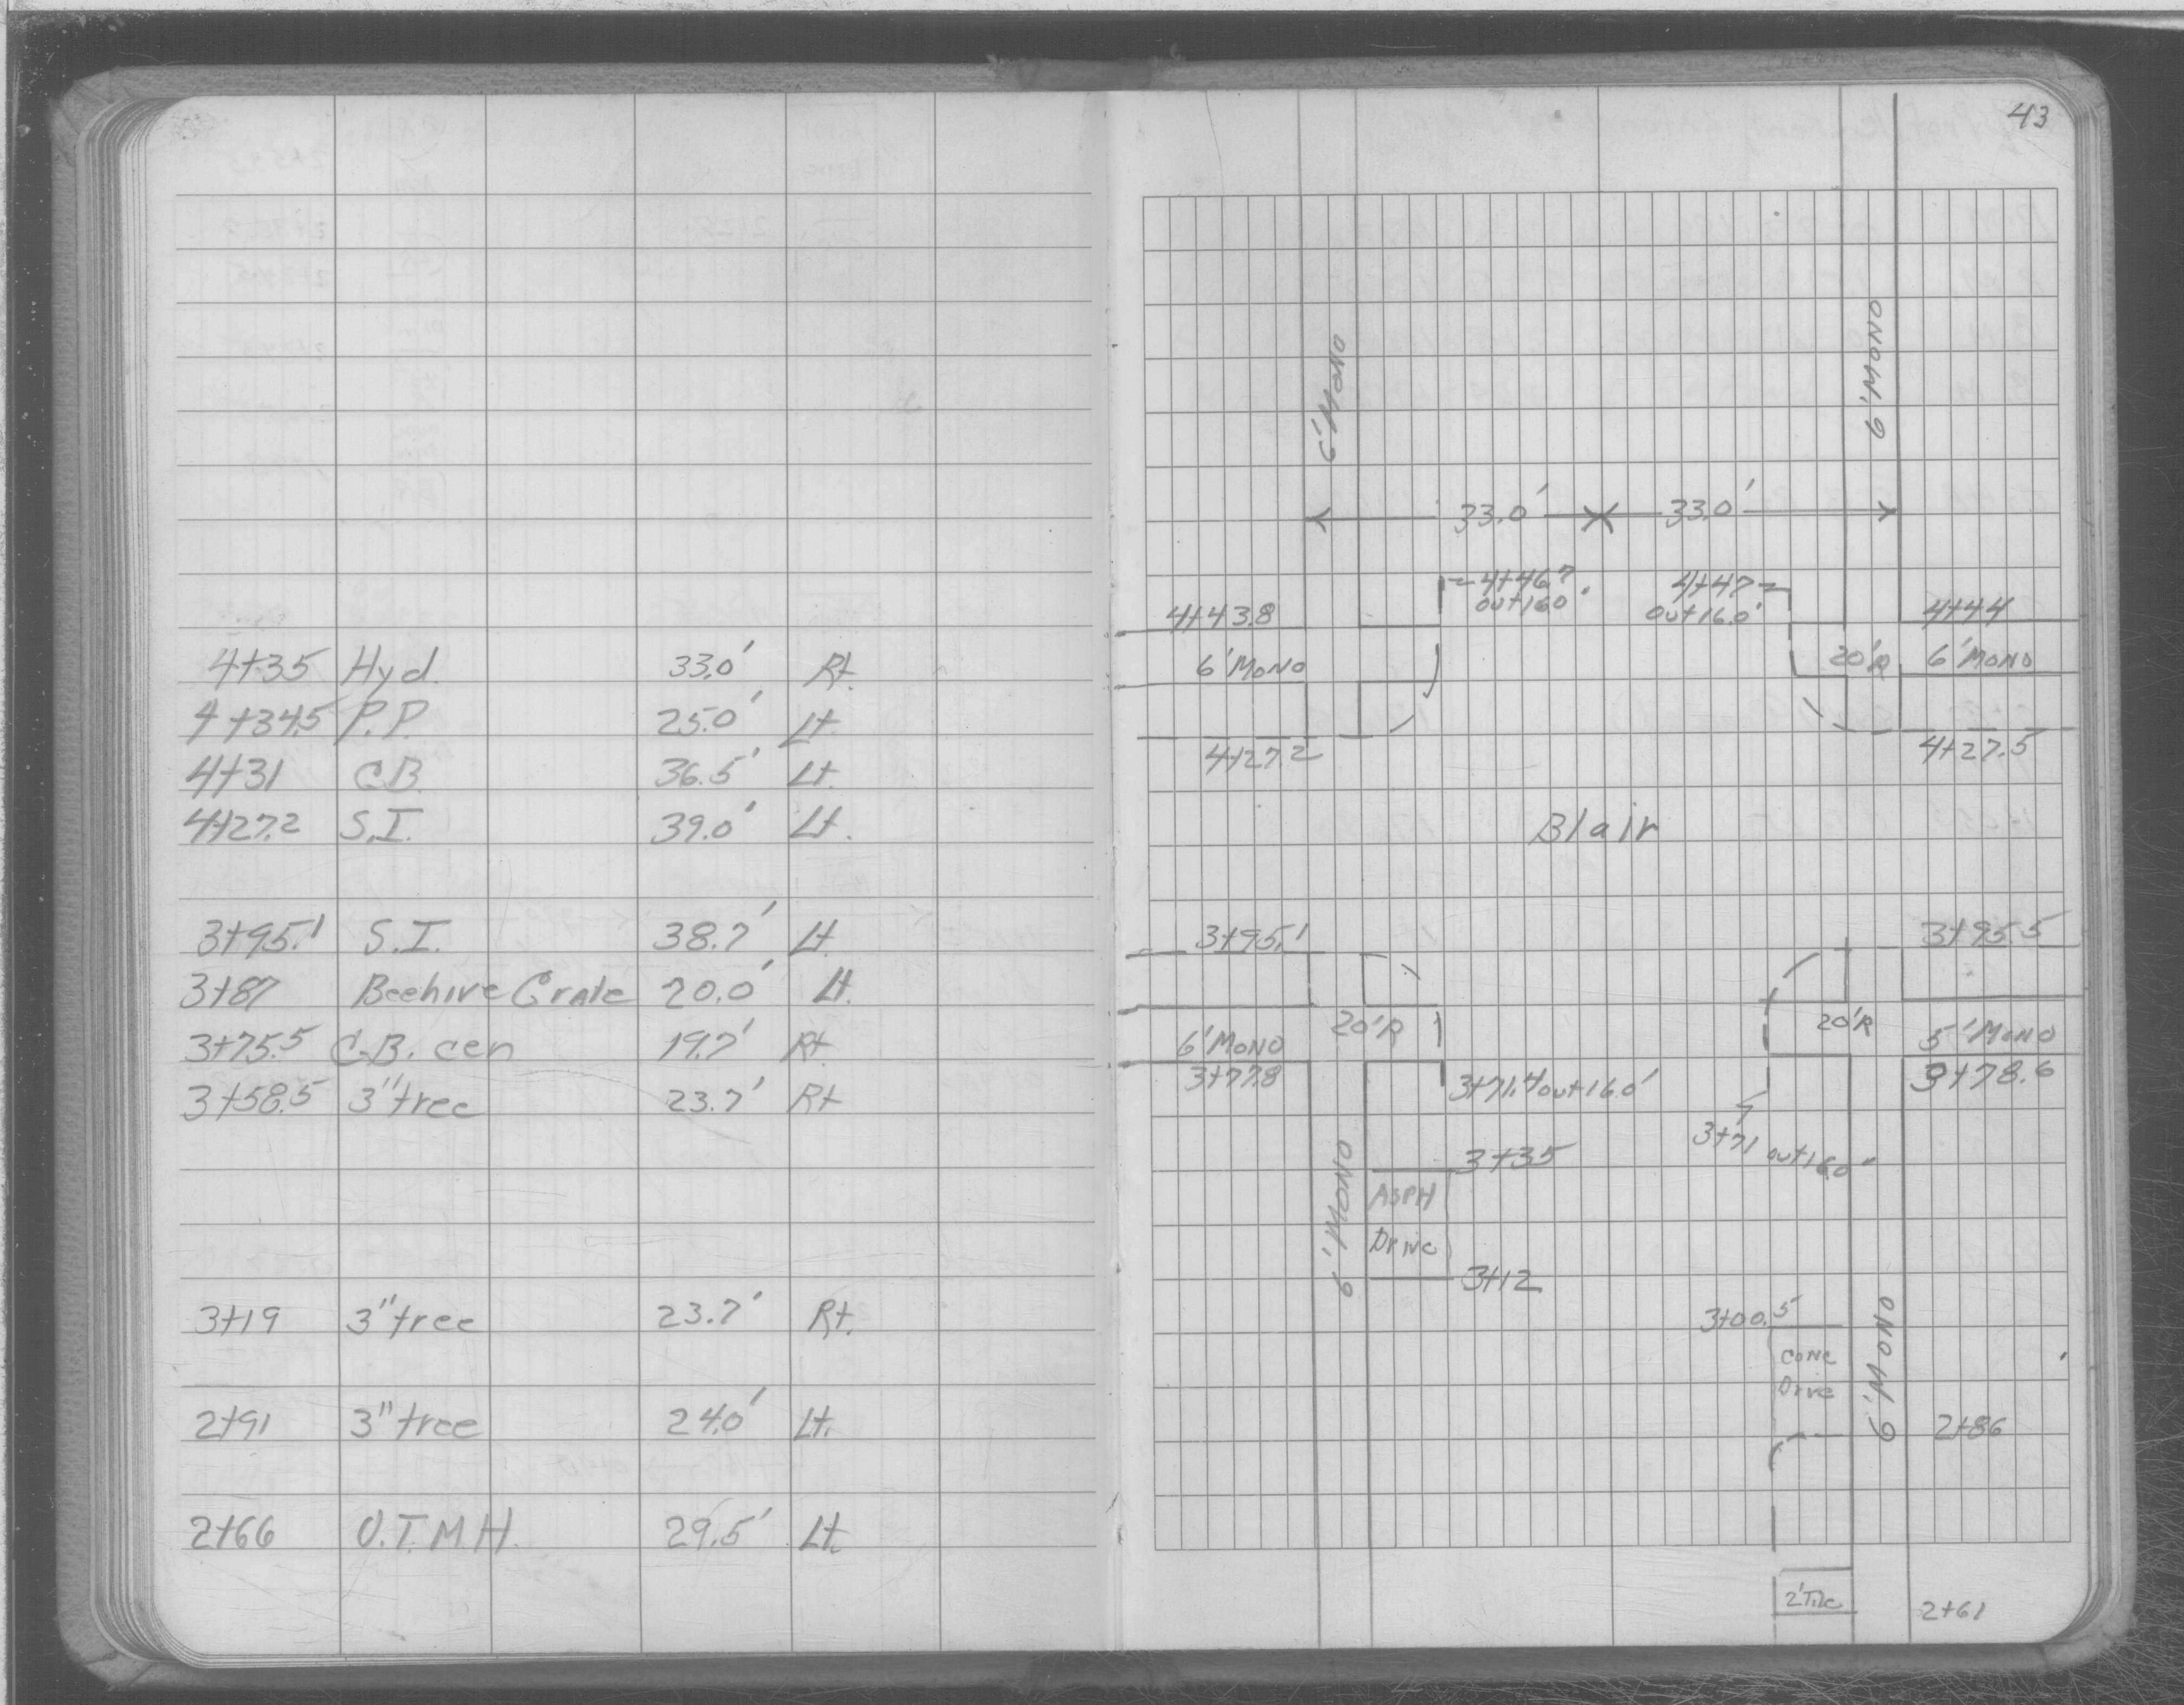 4+35 Hyd. 33.0' Rt.
4+34.5 P.P. 25.0' Lt.
4+31 C.B. 36.5' Lt.
4+27.2 S.I. 39.0' Lt.
3+95.1 S.I. 38.7' Lt
3+87 Beehive Grate 20.0' Lt.
3+75.5 C.B. cen 19.7' Rt
3+58.5 3" tree 23.7' Rt
3+19 3" tree 23.7' Rt.
2+91 3" tree 24.0' Lt.
2+66 U.T.M.H. 29.5' Lt.
43
6' MONO
6' MONO
33.0' 33.0'
4+46.7 4+47
out 16.0' out 16.0'
4+43.8 4+44
6' MONO 20'R 6' MONO
4+27.2 4+27.5
Blair
3+95.1 3+95.5
20'R 20'R
6' MONO 5' MONO
3+77.8 3+78.6
3+71.4 out 16.0'
3+71 out 16.0'
3+35
6' MONO
ASPH
Drive
3+12
3+00.5
CONC
Drive
6' MONO
2+86
2' Tile
2+61